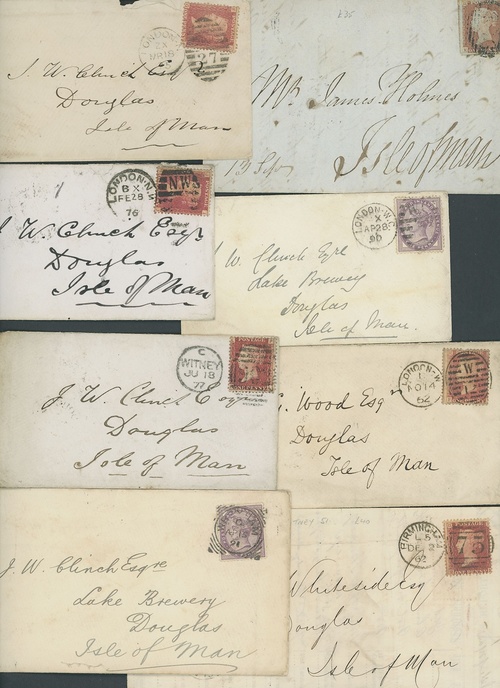 LONDON
EX
MR 18
27
J. W. Clinch Esqr
Douglas
Isle of Man
£35
Mr. James Holmes
Isle of man
LONDON-N.W
BX
FE 28
76
N.W
J. W. Clinch Esqr
Douglas
Isle of Man
LONDON-W
X
AP 28
90
W. Clinch Eqre
Lake Brewery
Douglas
Isle of Man.
C
WITNEY
JU 18
77
POSTAGE
J. W. Clinch Esqr
Douglas
Isle of Man
LONDON-W
NO 14
62
W
G. Wood Esqr
Douglas
Isle of Man
J. W. Clinch Esqre
Lake Brewery
Douglas
Isle of Man
BIRMINGHAM
DE 2
62
75
Whiteside Esq
Douglas
Isle of Man